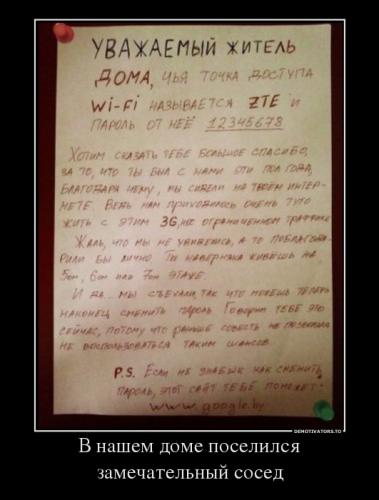 УВАЖАЕМЫЙ ЖИТЕЛЬ
ДОМА, ЧЬЯ ТОЧКА ДОСТУПА
Wi-Fi НАЗЫВАЕТСЯ ZTE И
ПАРОЛЬ ОТ НЕЁ 12345678
ХОТИМ СКАЗАТЬ ТЕБЕ БОЛЬШОЕ СПАСИБО,
ЗА ТО, ЧТО ТЫ БЫЛ С НАМИ ЭТИ ПОЛ ГОДА,
БЛАГОДАРЯ ЧЕМУ, МЫ СИДЕЛИ НА ТВОЁМ ИНТЕР-
НЕТЕ. ВЕДЬ НАМ ПРИХОДИЛОСЬ ОЧЕНЬ ТУГО
ЖИТЬ С ЭТИМ 3G, ИХ ОГРАНИЧЕННОМ ТРАФИКЕ
ЖАЛЬ, ЧТО МЫ НЕ УВИДЕЛИСЬ, А ТО ПОБЛАГОДА-
РИЛИ БЫ ЛИЧНО ТЫ НАВЕРНЯКА ЖИВЁШЬ НА
5ОМ, 6ОМ ИЛИ 7ОМ ЭТАЖЕ.
И ДА... МЫ СЪЕХАЛИ, ТАК ЧТО МОЖЕШЬ ТЕПЕРЬ
НАКОНЕЦ СМЕНИТЬ ПАРОЛЬ ГОВОРИМ ТЕБЕ ЭТО
СЕЙЧАС, ПОТОМУ ЧТО РАНЬШЕ СОВЕСТЬ НЕ ПОЗВОЛЯЛА
НЕ ВОСПОЛЬЗОВАТЬСЯ ТАКИМ ШАНСОМ.
P.S. ЕСЛИ НЕ ЗНАЕШЬ КАК СМЕНИТЬ
ПАРОЛЬ, ЭТОТ САЙТ ТЕБЕ ПОМОЖЕТ:
www.google.by
DEMOTIVATORS.TO
В нашем доме поселился
замечательный сосед